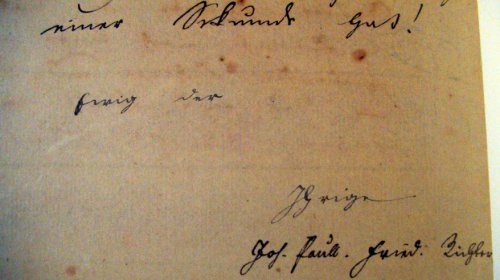 einer Sekunde hat!
Ewig der
Ihrige
Joh. Paull. Fried. Richter